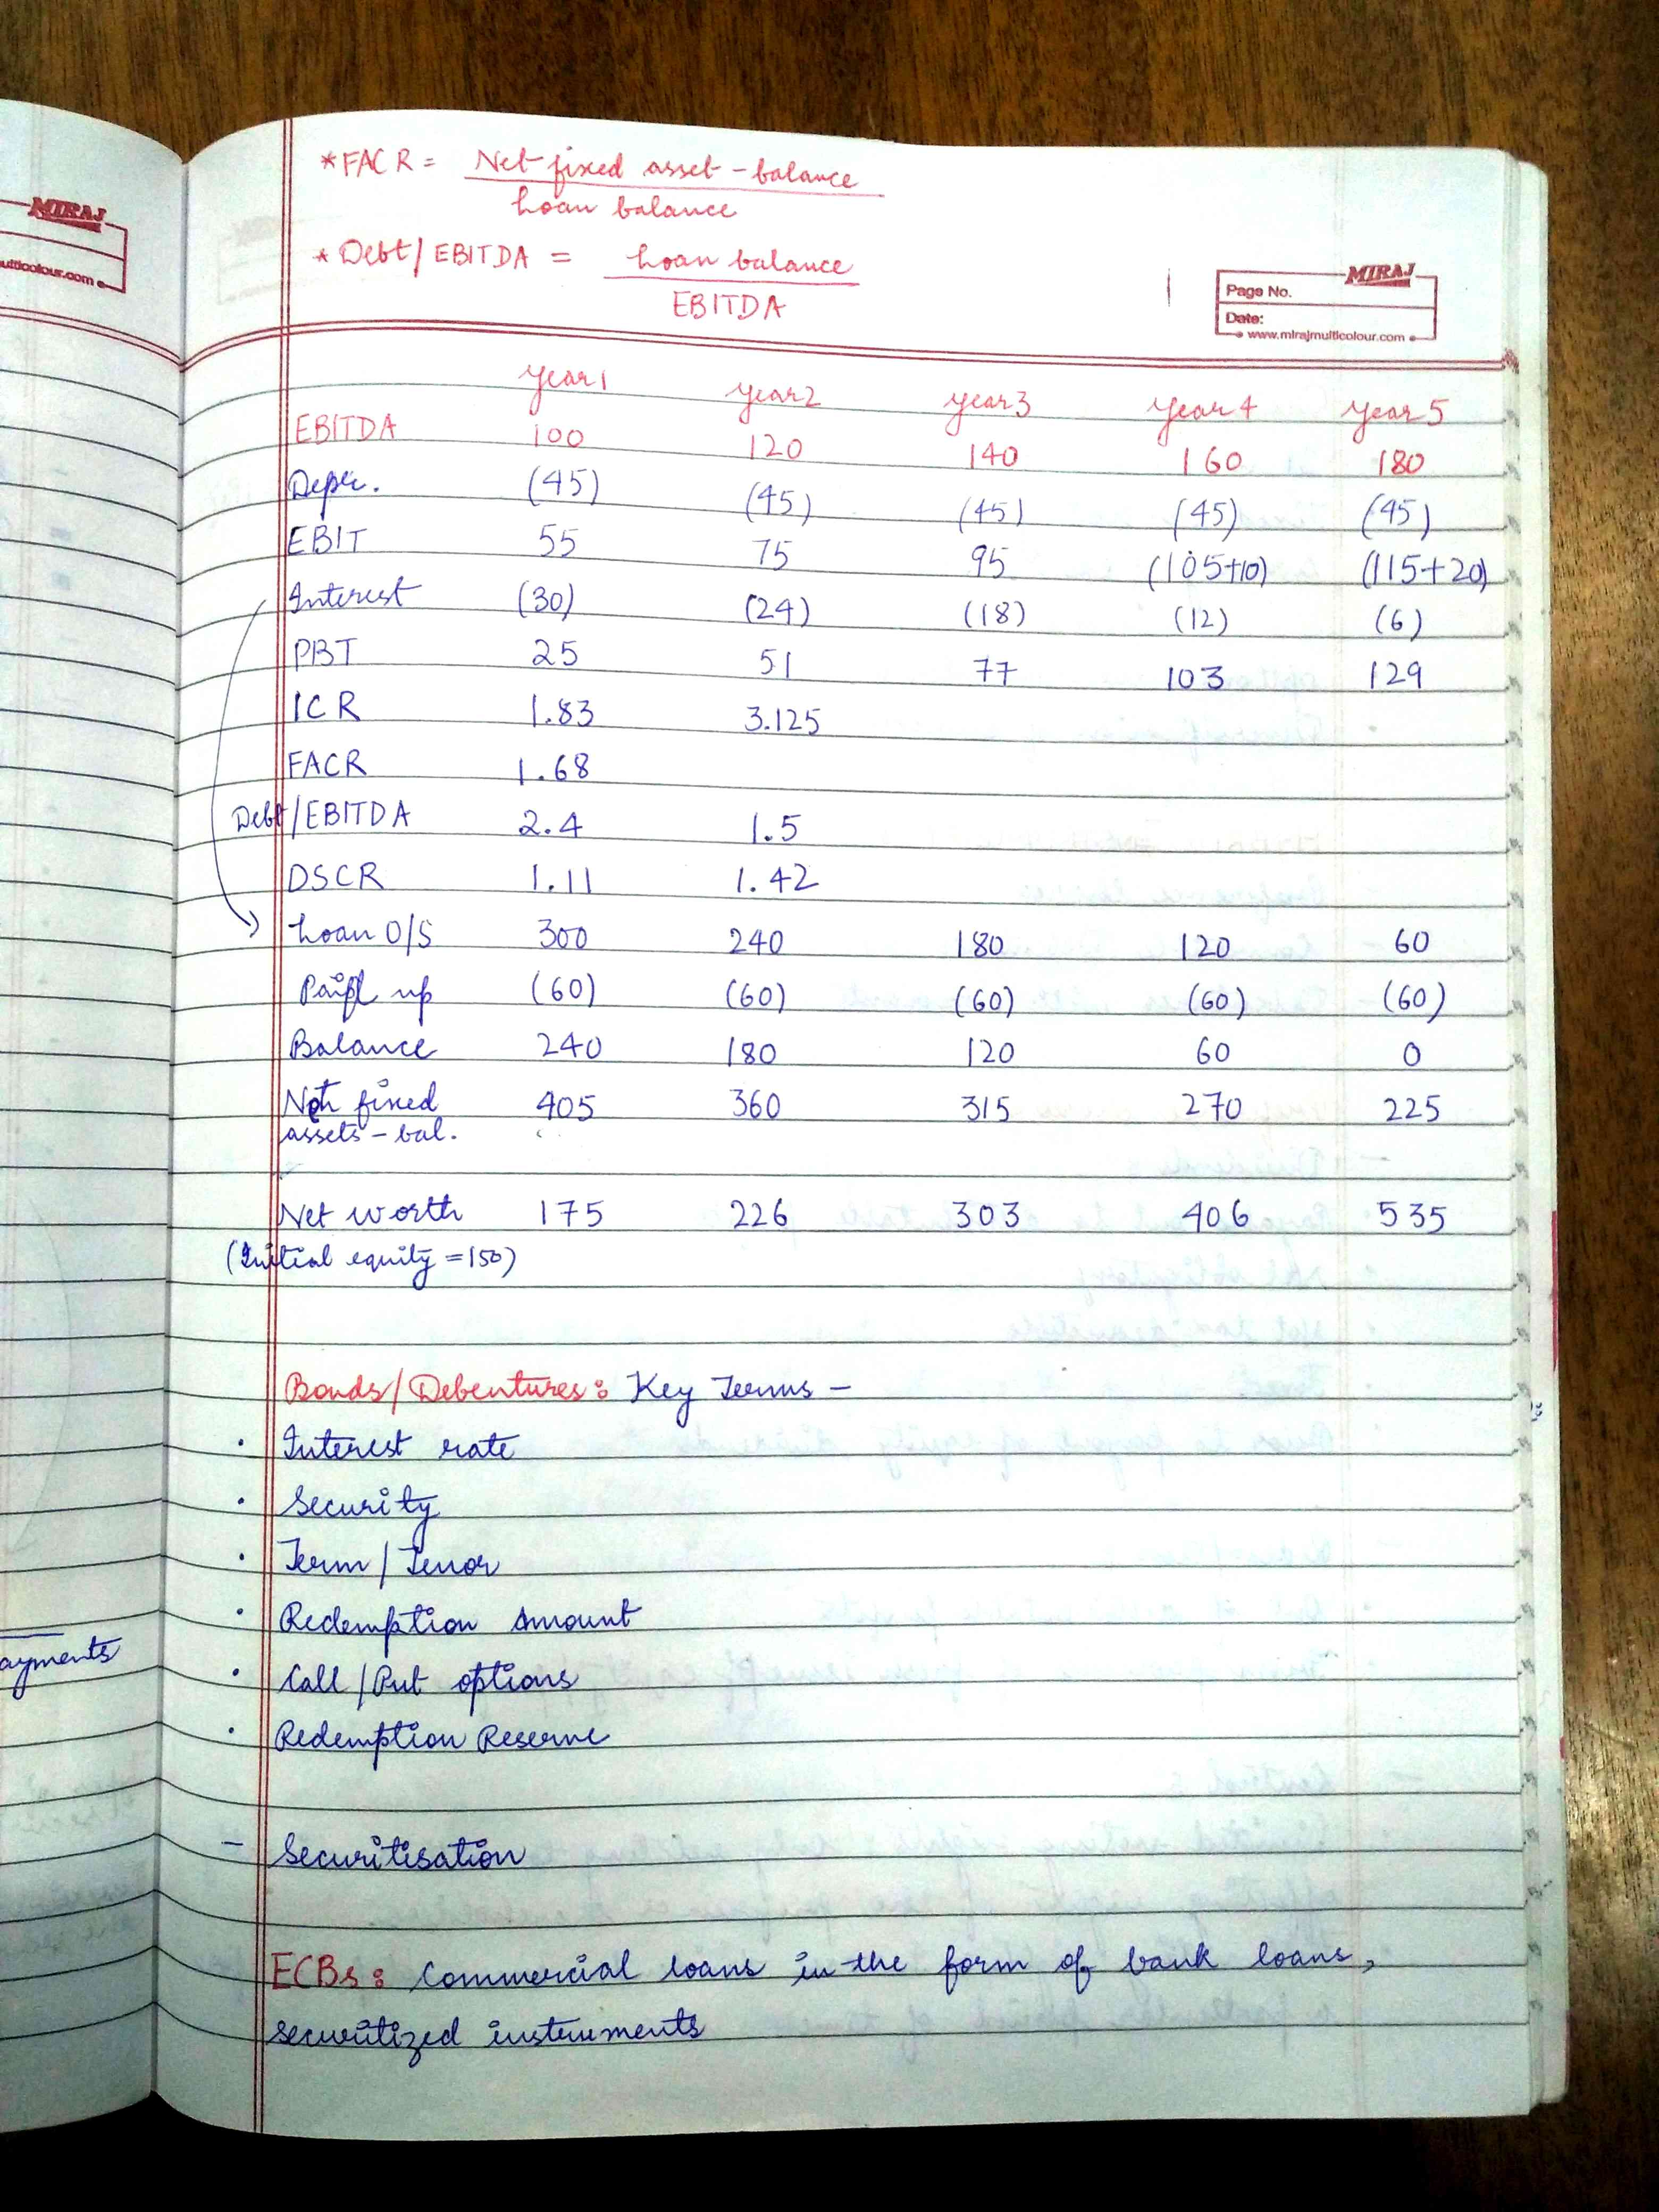 MIRAJ
ulticolour.com
ayments
*FACR = Net fixed asset - balance
Loan balance
* Debt/EBITDA = Loan balance
EBITDA
MIRAJ
Page No.
Date:
www.mirajmulticolour.com
Year 1 Year 2 Year 3 Year 4 Year 5
EBITDA 100 120 140 160 180
Depr. (45) (45) (45) (45) (45)
EBIT 55 75 95 (105+10) (115+20)
Interest (30) (24) (18) (12) (6)
PBT 25 51 77 103 129
ICR 1.83 3.125
FACR 1.68
Debt/EBITDA 2.4 1.5
DSCR 1.11 1.42
Loan O/S 300 240 180 120 60
Paid up (60) (60) (60) (60) (60)
Balance 240 180 120 60 0
Net fixed 405 360 315 270 225
assets - bal.
Net worth 175 226 303 406 535
(Initial equity = 150)
Bonds/Debentures: Key Terms -
· Interest rate
· Security
· Term/Tenor
· Redemption Amount
· Call/Put options
· Redemption Reserve
- Securitisation
ECBs: Commercial loans in the form of bank loans,
securitized instruments